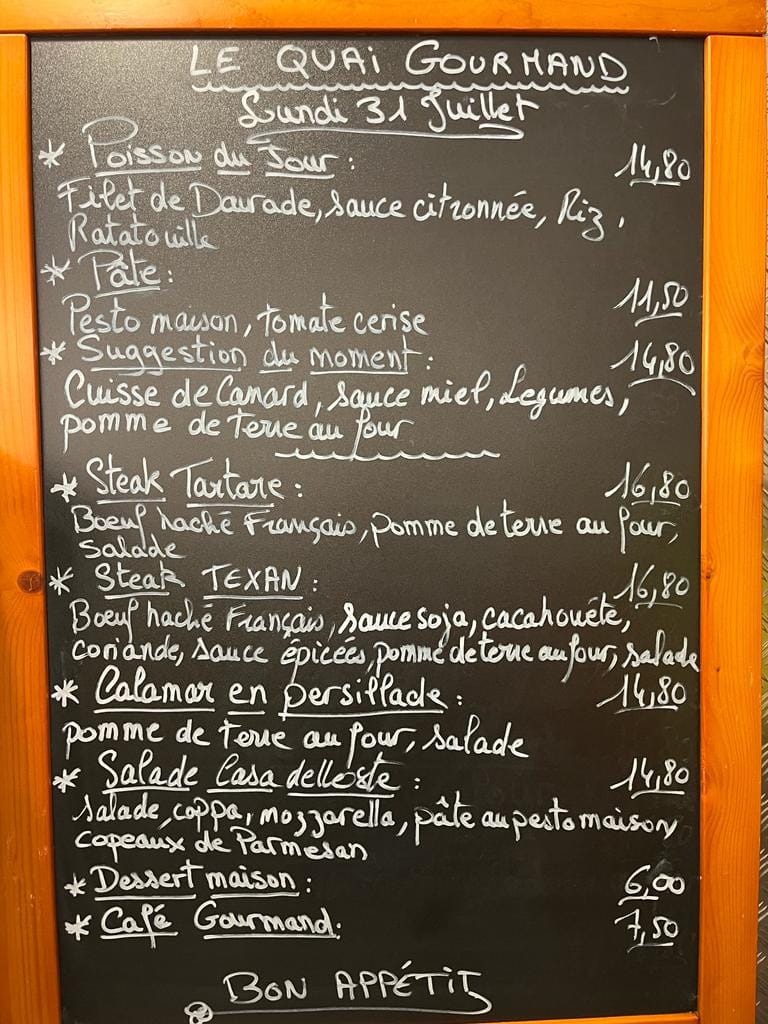 LE QUAI GOURMAND
Lundi 31 Juillet
* Poisson du Jour : 14,80
Filet de Daurade, sauce citronnée, Riz,
Ratatouille
* Pâte :
11,50
Pesto maison, tomate cerise
* Suggestion du moment : 14,80
Cuisse de Canard, sauce miel, Legumes,
pomme de terre au four
* Steak Tartare : 16,80
Bœuf haché Français, pomme de terre au four,
salade
* Steak TEXAN : 16,80
Bœuf haché Français, sauce soja, cacahouète,
coriande, sauce épicées, pomme de terre au four, salade
* Calamar en persillade : 14,80
pomme de terre au four, salade
* Salade Casa delloste : 14,80
salade, coppa, mozzarella, pâte au pesto maison
copeaux de Parmesan
* Dessert maison : 6,00
* Café Gourmand : 7,50
BON APPÉTIT